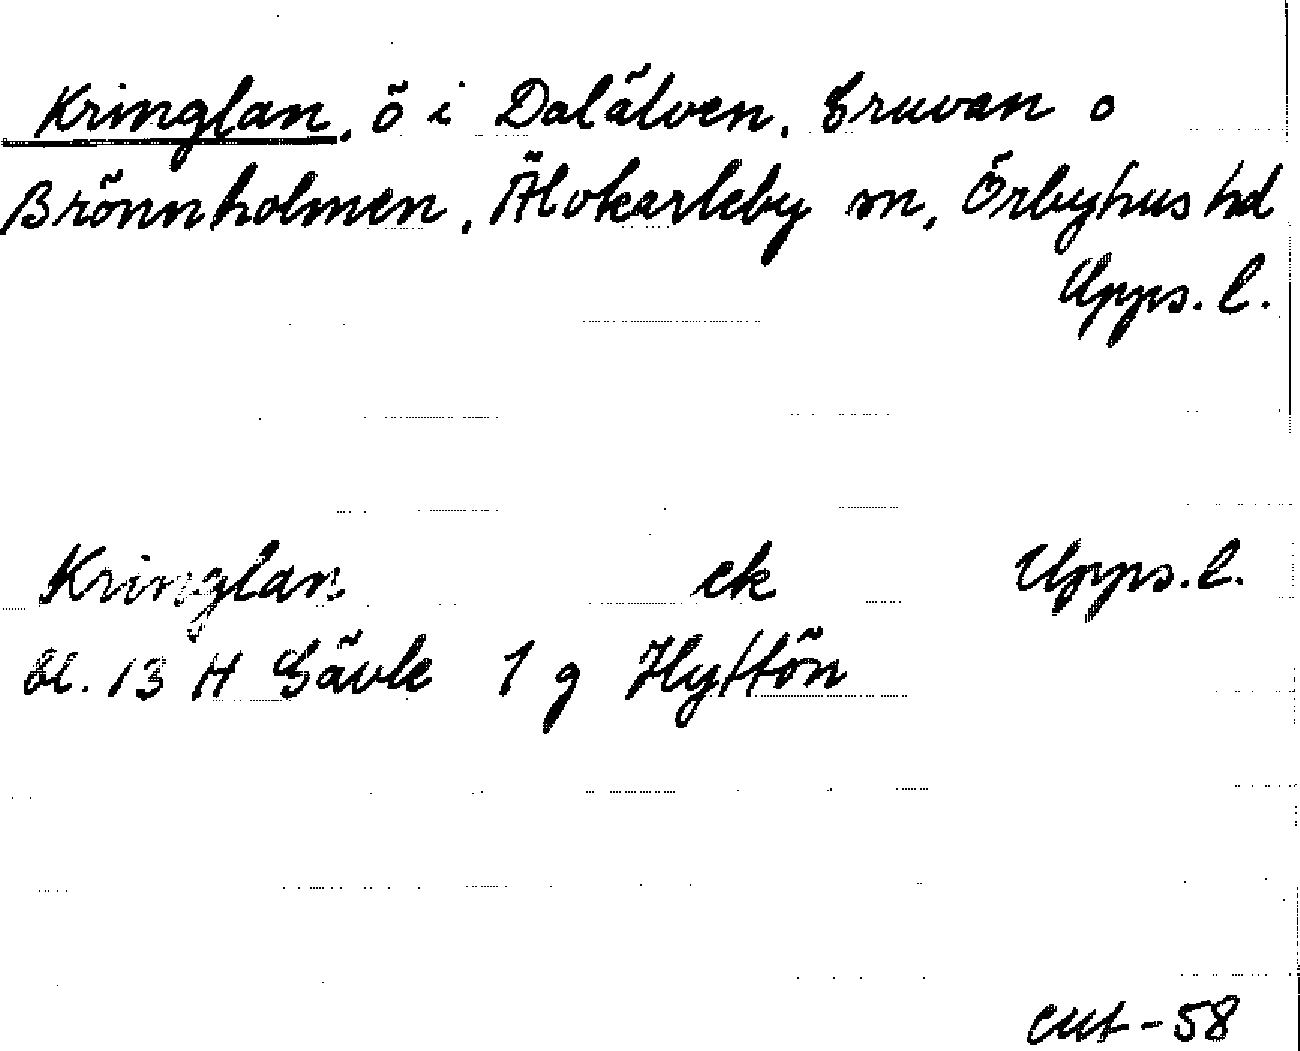 Kringlan, ö i Dalälven, Gruvan o
Brönnholmen, Älvkarleby sn, Örbyhus hd
Upps. l.
Kringlan ek Upps. l.
bl. 13 H Gävle 1 g Hyttön
-58